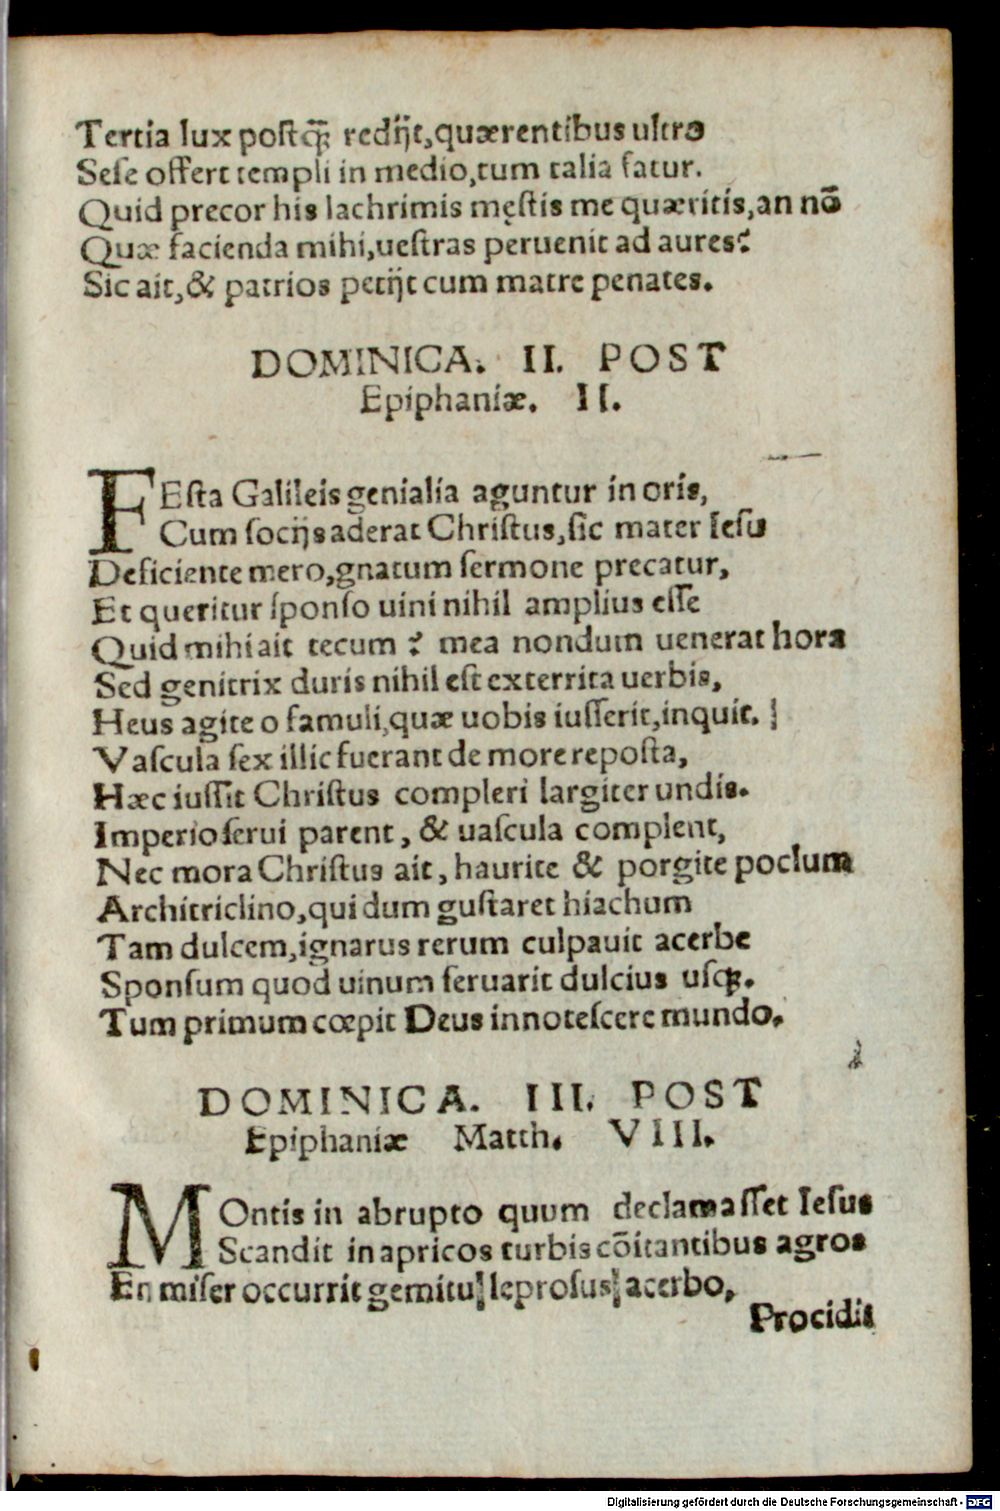 Tertia lux postq̃ꝫ redijt,quærentibus ultro
Sese offert templi in medio,tum talia fatur.
Quid precor his lachrimis męstis me quæritis,an nõ
Quæ facienda mihi,uestras peruenit ad aures?
Sic ait,& patrios petijt cum matre penates.
DOMINICA. II. POST
Epiphaniæ. II.
FEsta Galileis genialia aguntur in oris,
Cum socijs aderat Christus,sic mater Iesu
Deficiente mero,gnatum sermone precatur,
Et queritur sponso uini nihil amplius esse
Quid mihi ait tecum ? mea nondum uenerat hora
Sed genitrix duris nihil est exterrita uerbis,
Heus agite o famuli,quæ uobis iusserit,inquit.
Vascula sex illic fuerant de more reposta,
Hæc iussit Christus compleri largiter undis.
Imperio serui parent, & uascula complent,
Nec mora Christus ait, haurite & porgite poclum
Architriclino,qui dum gustaret hiachum
Tam dulcem,ignarus rerum culpauit acerbe
Sponsum quod uinum seruarit dulcius usqꝫ.
Tum primum cœpit Deus innotescere mundo.
DOMINICA. III. POST
Epiphaniæ Matth. VIII.
MOntis in abrupto quum declamasset Iesus
Scandit in apricos turbis cõitantibus agros
En miser occurrit gemitu leprosus acerbo,
Procidit
Digitalisierung gefördert durch die Deutsche Forschungsgemeinschaft - DFG